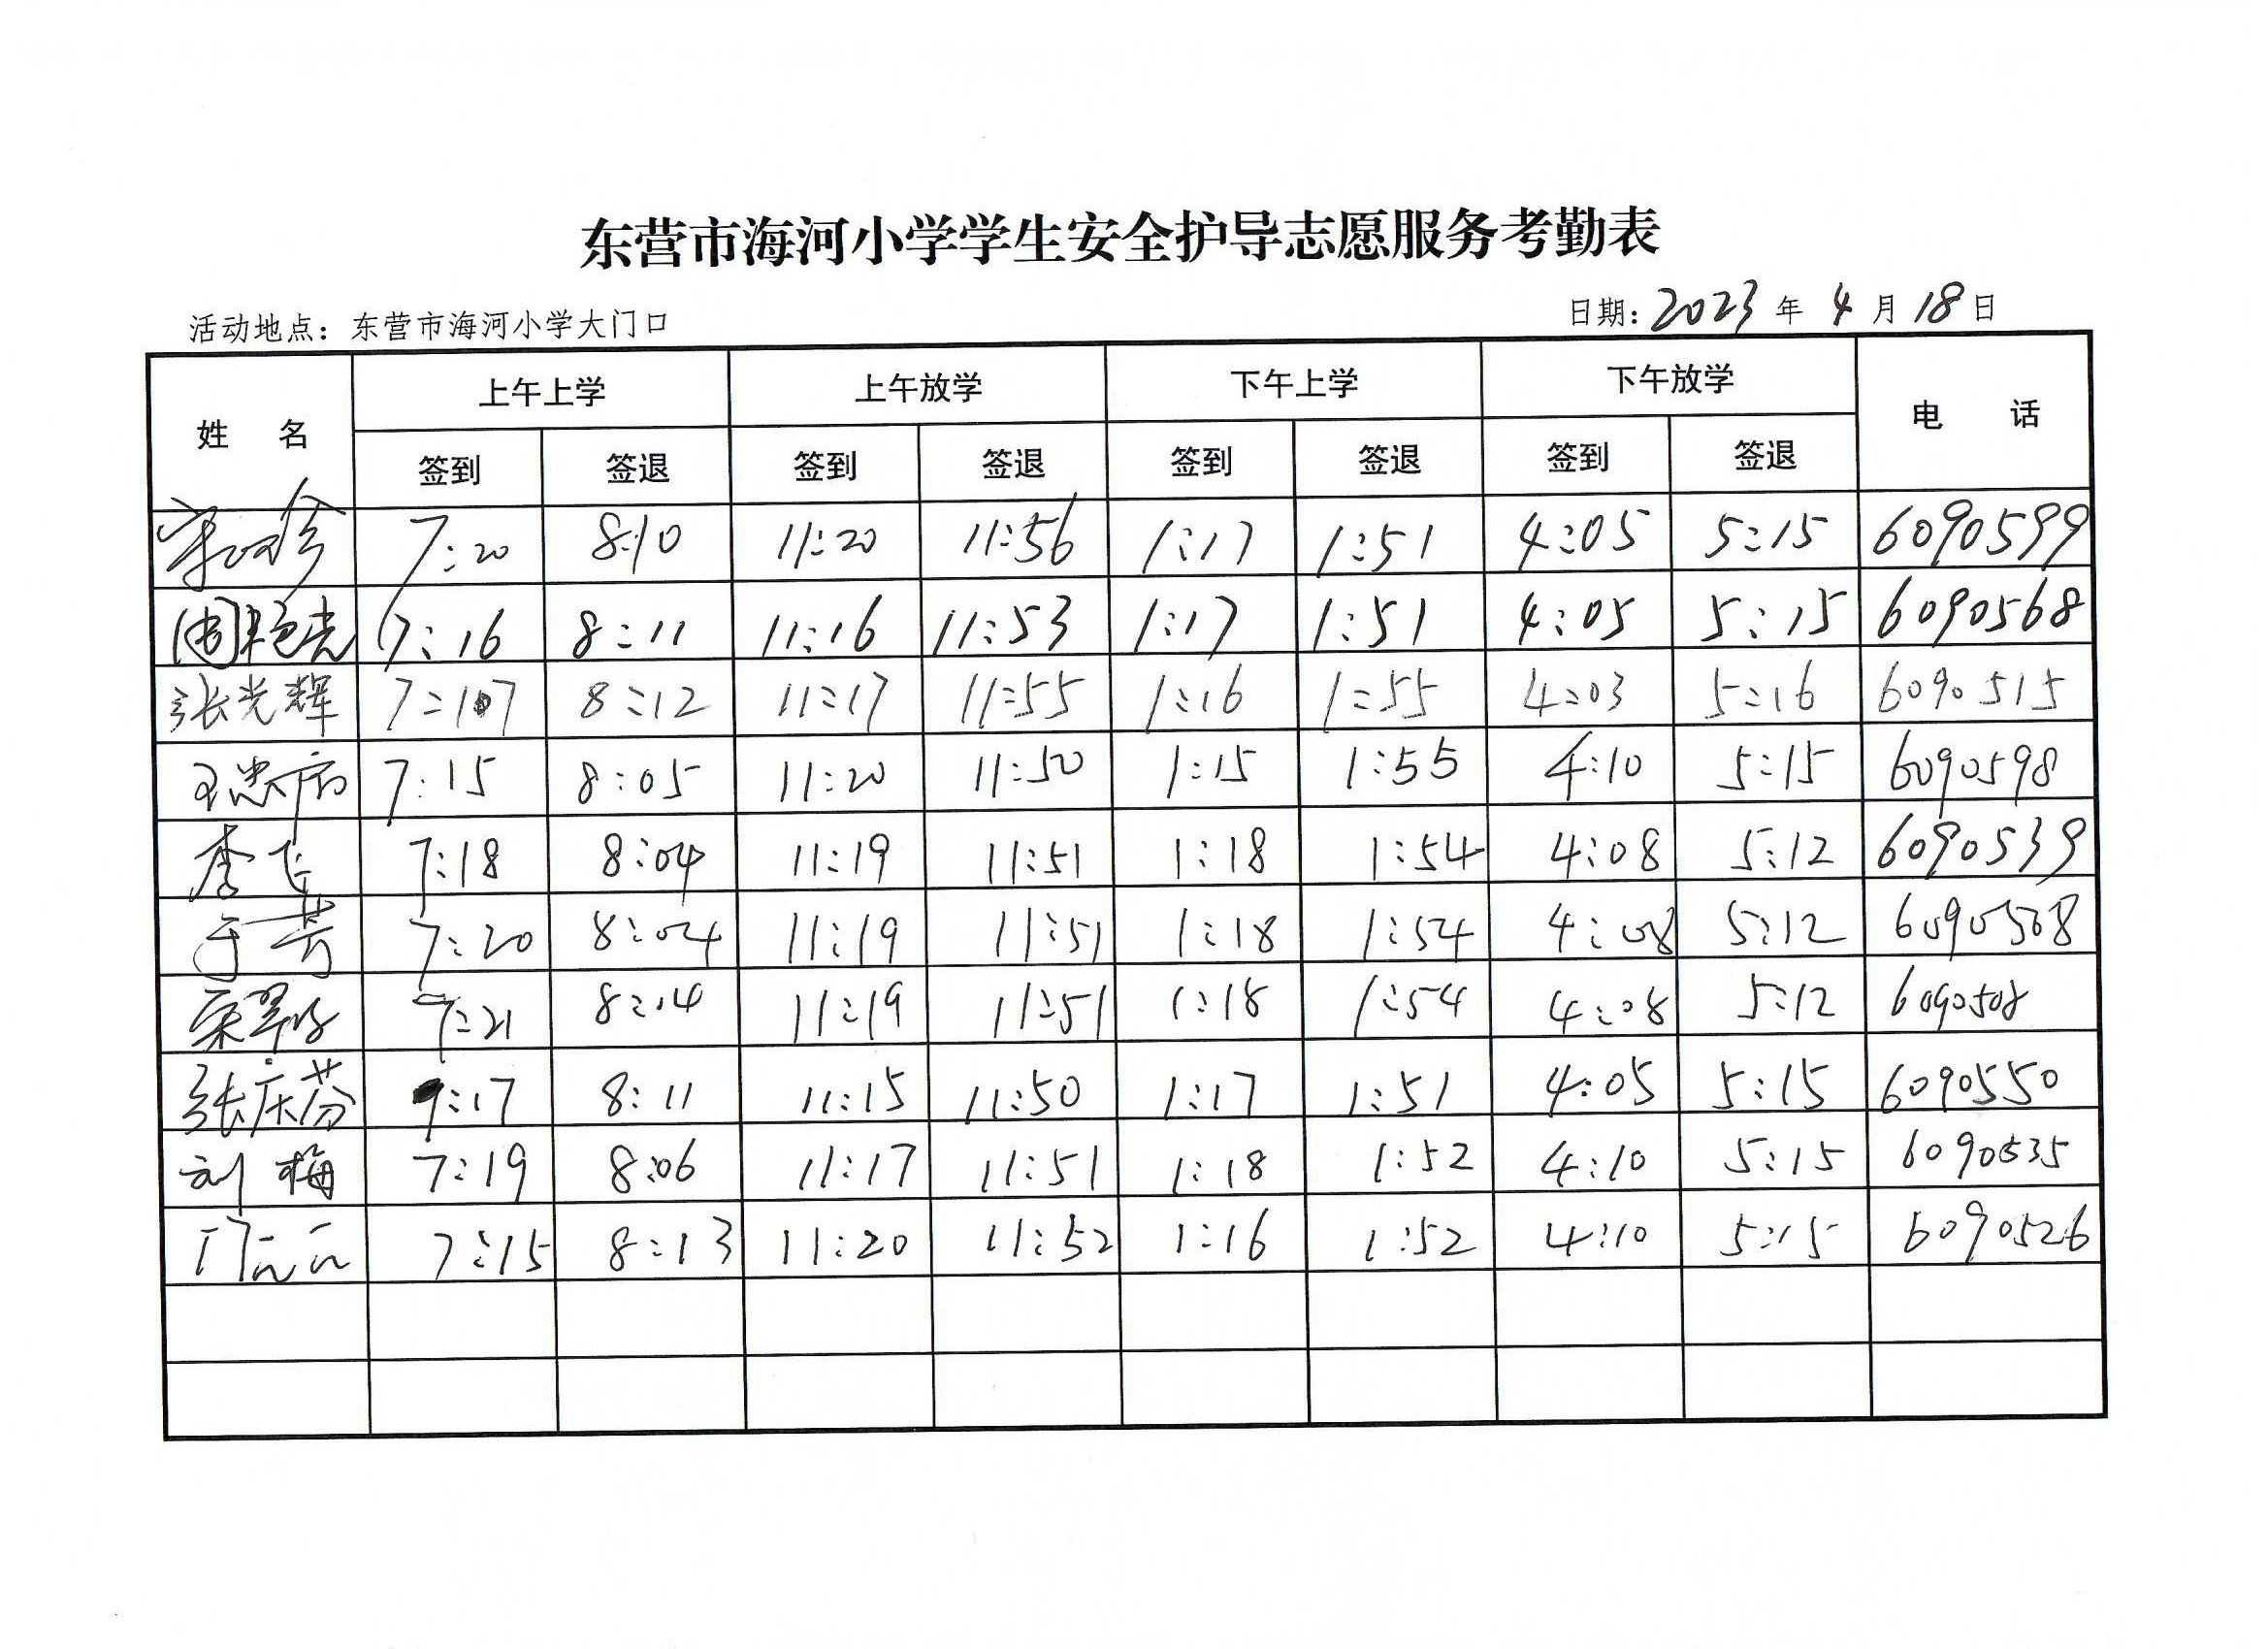 东营市海河小学学生安全护导志愿服务考勤表
活动地点：东营市海河小学大门口 日期：2023年4月18日
姓 名 上午上学 上午放学 下午上学 下午放学 电 话
签到 签退 签到 签退 签到 签退 签到 签退
7:20 8:10 11:20 11:56 1:17 1:51 4:05 5:15 6090599
周艳光 7:16 8:11 11:16 11:53 1:17 1:51 4:05 5:15 6090568
张光辉 7:17 8:12 11:17 11:55 1:16 1:55 4:03 5:16 6090515
7:15 8:05 11:20 11:50 1:15 1:55 4:10 5:15 6090598
李飞 7:18 8:04 11:19 11:51 1:18 1:54 4:08 5:12 6090539
于芳 7:20 8:04 11:19 11:51 1:18 1:54 4:08 5:12 6090508
7:21 8:04 11:19 11:51 1:18 1:54 4:08 5:12 6090508
张庆芬 7:17 8:11 11:15 11:50 1:17 1:51 4:05 5:15 6090550
刘梅 7:19 8:06 11:17 11:51 1:18 1:52 4:10 5:15 6090535
门元元 7:15 8:13 11:20 11:52 1:16 1:52 4:10 5:15 6090526